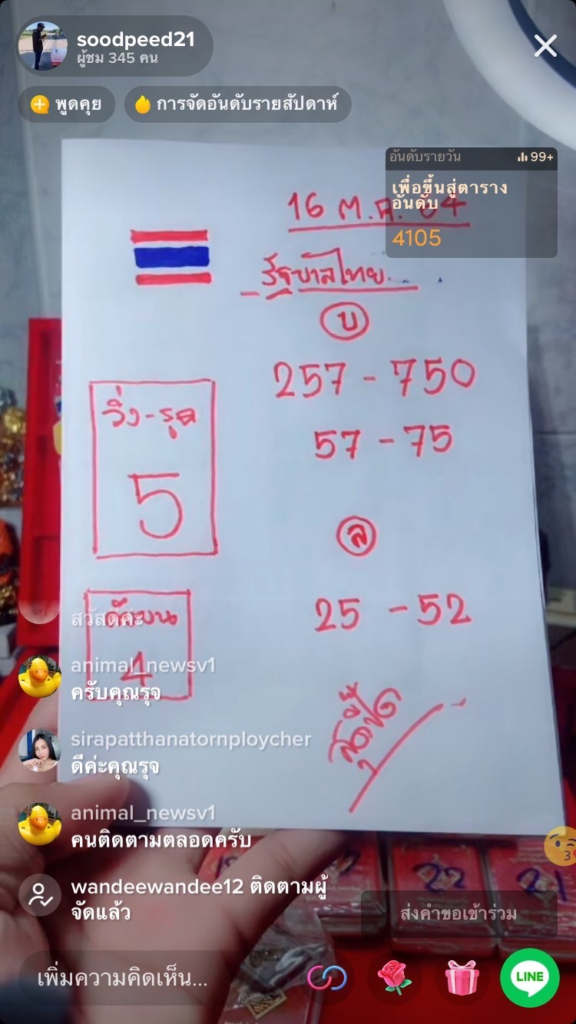 soodpeed21
ผู้ชม 345 คน
พูดคุย
การจัดอันดับรายสัปดาห์
อันดับรายวัน 99+
เพื่อขึ้นสู่ตาราง
อันดับ
4105
16 ต.ค. 64
รัฐบาลไทย
บ
257 - 750
57 - 75
วิ่ง-รูด
5
ล
25 - 52
4
สวัสดีค่ะ
animal_newsv1
ครับคุณรุจ
sirapatthanatornploycher
ดีค่ะคุณรุจ
animal_newsv1
คนติดตามตลอดครับ
wandeewandee12 ติดตามผู้
จัดแล้ว
22
21
ส่งคำขอเข้าร่วม
เพิ่มความคิดเห็น...
LINE